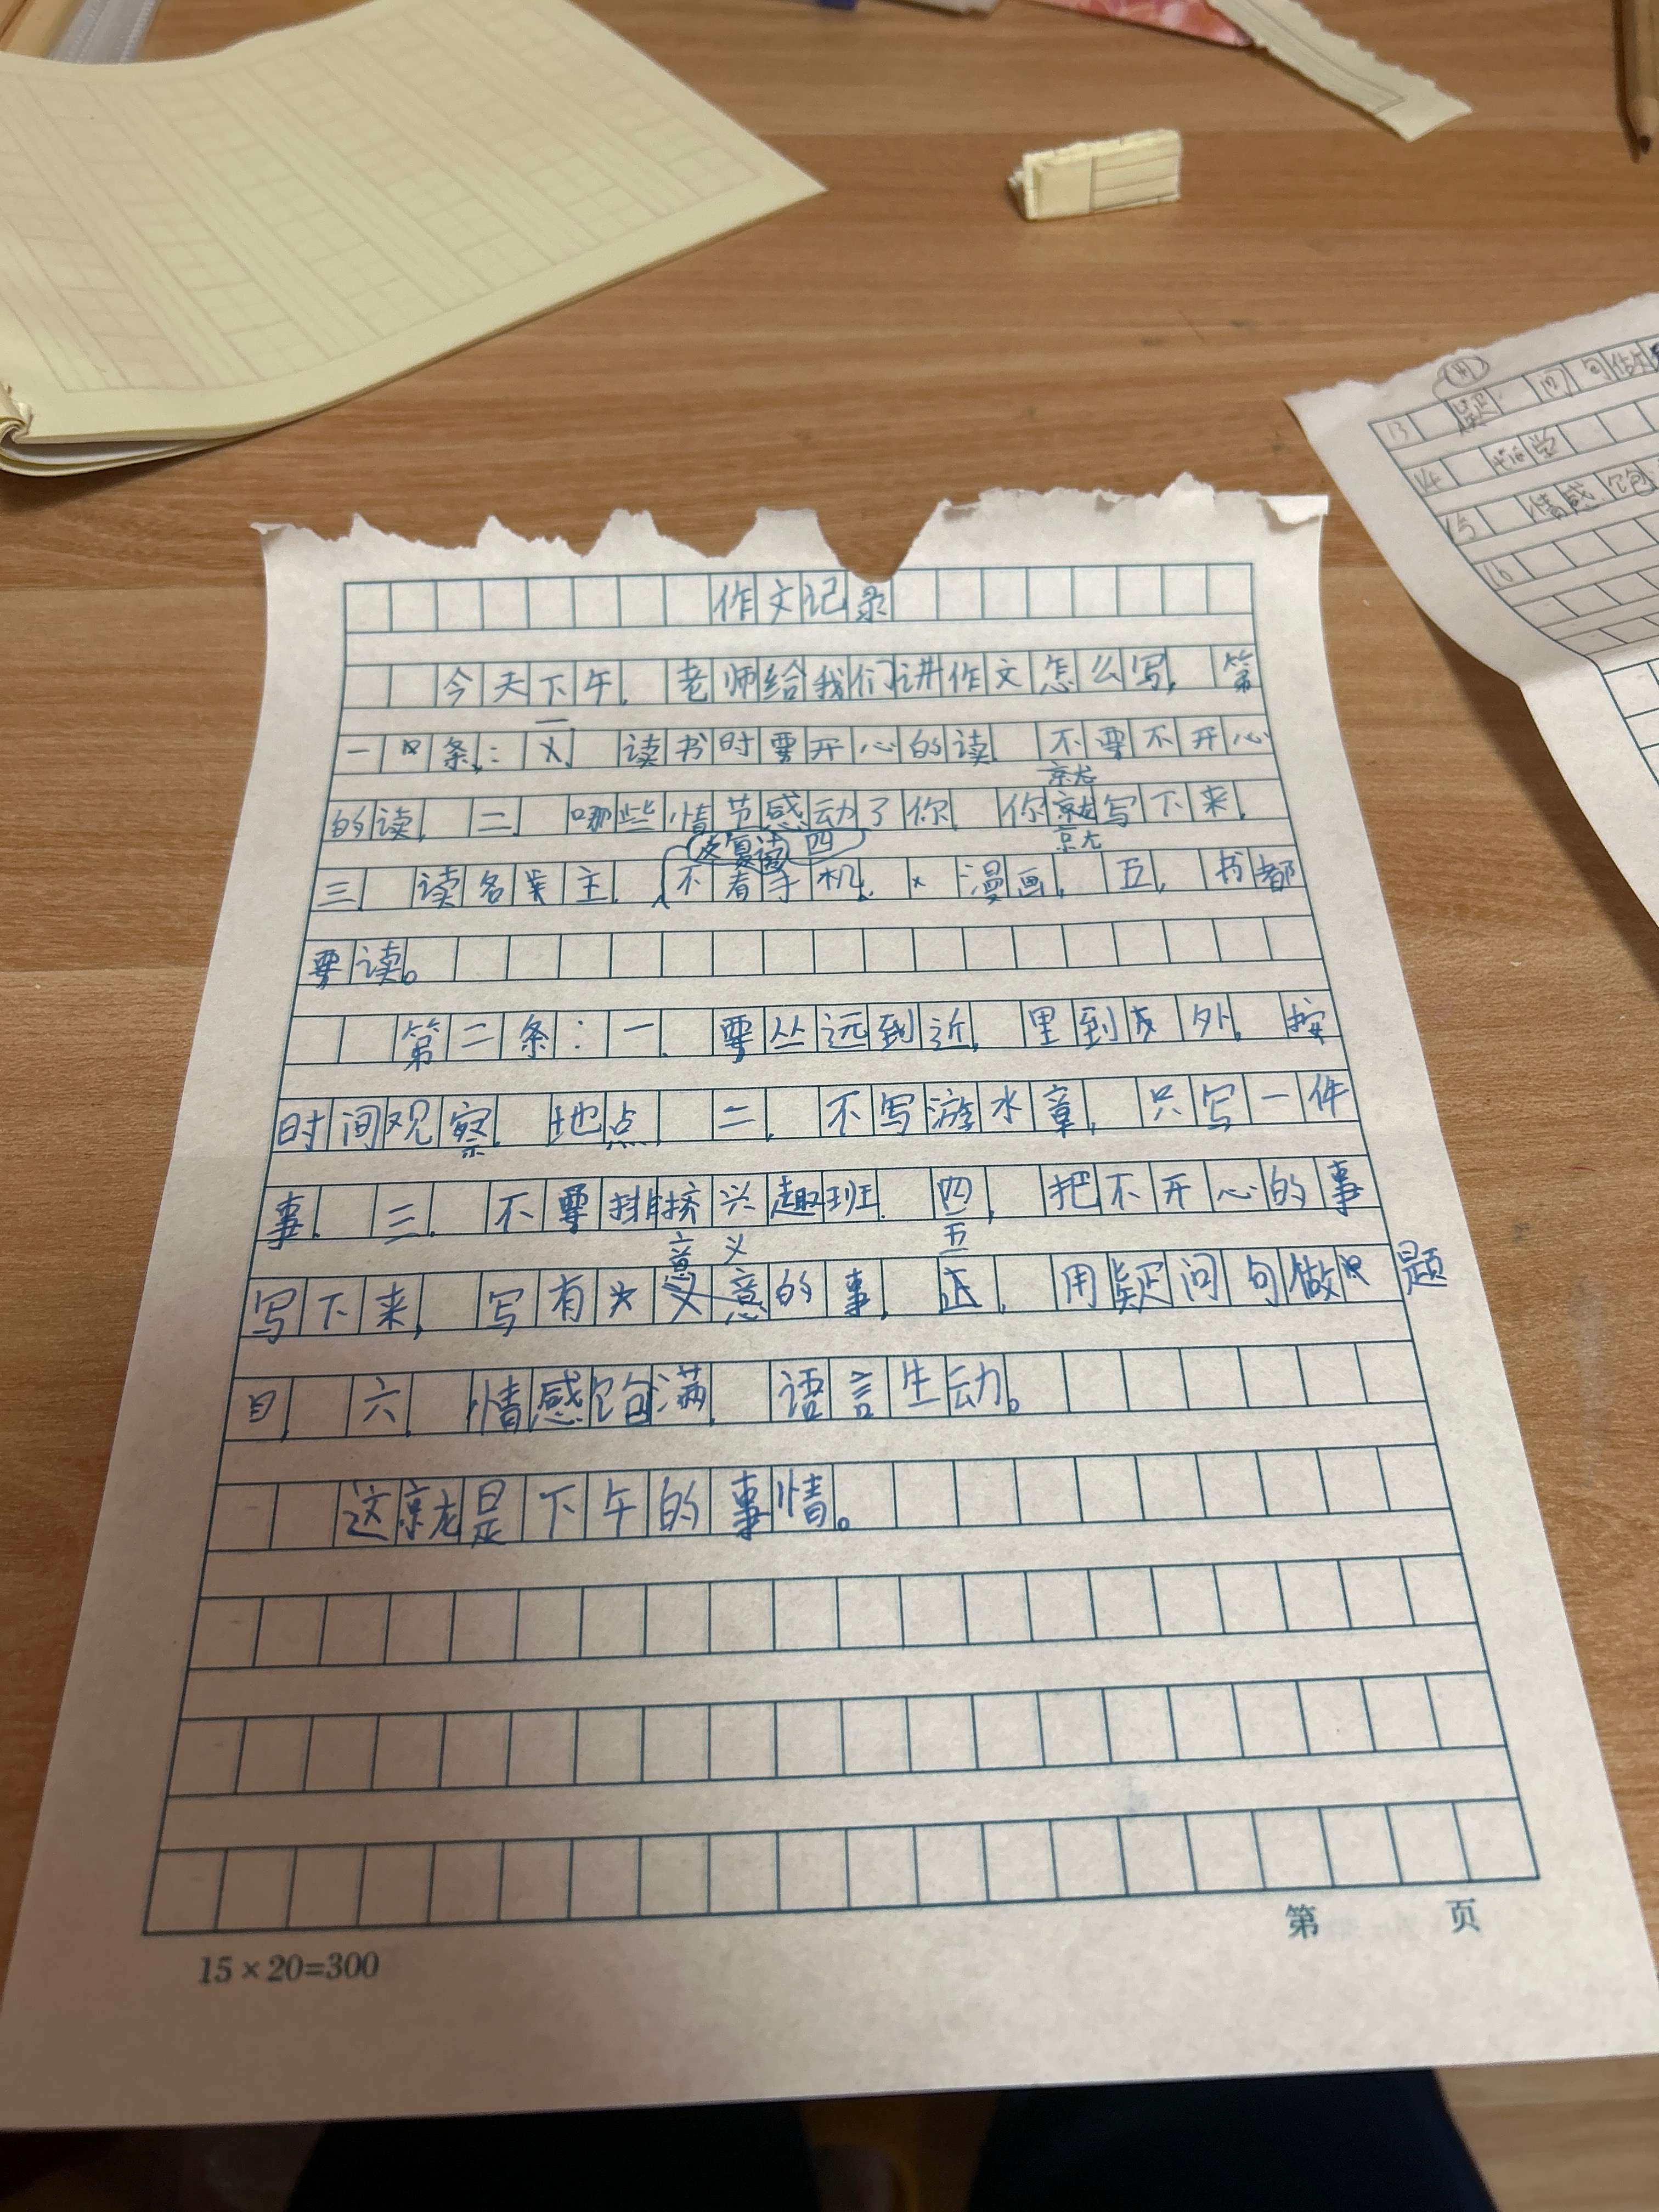 作文记录
今天下午,老师给我们讲作文怎么写,第
一条:一、读书时要开心的读,不要不开心
的读,二、哪些情节感动了你,你就写下来,
三、读名著,反复读,四、
不看手机,漫画,五,书都
要读。
第二条:一、要从远到近,里到外,按
时间观察,地点,二、不写游水章,只写一件
事,三、不要排挤兴趣班,四,把不开心的事
写下来,写有意义的事,五,用疑问句做题
目,六、情感饱满,语言生动。
这就是下午的事情。
15×20=300
第 页
13 疑问句做
14
15 情感饱
16